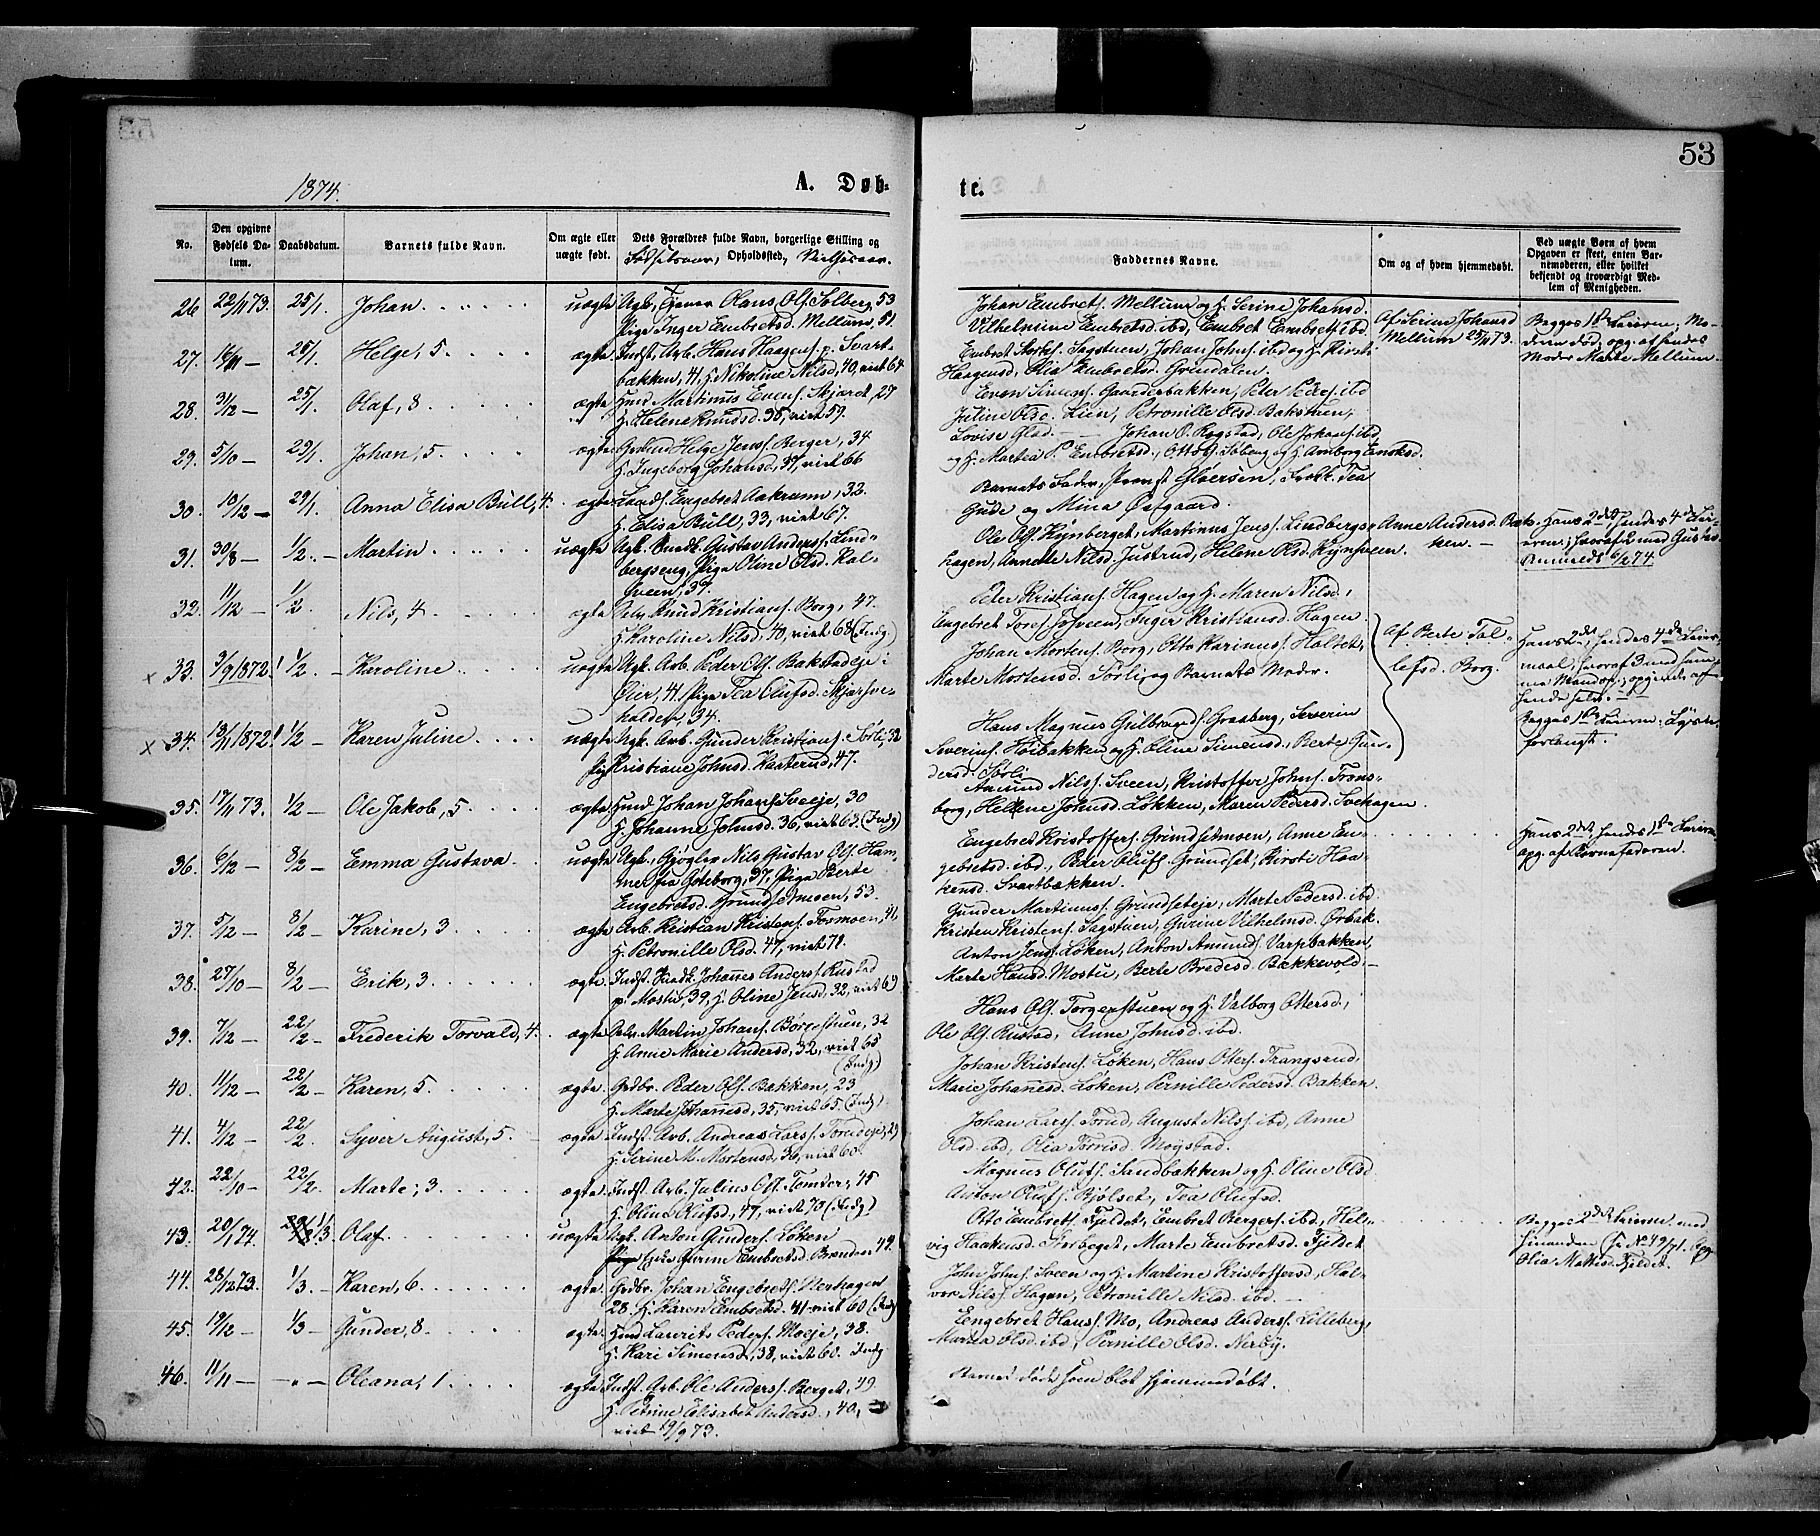 53
1874.
A. Døb-
te.
No.
Den opgivne Fødsels Datum.
Daabsdatum.
Barnets fulde Navn.
Om ægte eller uægte født.
Dets Forældres fulde Navn, borgerlige Stilling og Fødselsaar, Opholdssted, Vielsesaar.
Faddernes Navne.
Om og af hvem hjemmedøbt.
Ved uægte Børn af hvem Opgaven er skeet, enten Barnemoderen, eller hvilket bekjendt og troværdigt Medlem af Menigheden.
26 22/11 73. 25/1. Johan uægte Ugb. Olaus Ols. Solberg, 53
Pige Inger Embretsd. Mellum, 51.
Johan Embrets. Mellum og H. Serine Johansd.
Vilhelmine Embretsd. ibd, Embret Embrets. ibd
Af Serine Johansd Mellum 25/11 73.
Begges 1ste Leierm; Moderen død, opg. af hendes Moder Marte Mellum.
27. 16/11 — 25/1. Helge, 5. ægte Indst. Arb. Hans Haagens. p. Svartbakken, 41, H. Nikoline Nilsd, 40, viet 64
Embret Sagstuen, Johan Johns. ibd og H. Kirsti
Haagensd, Olia Embretsd. Grindalen.
28. 31/12 — 25/1. Olaf, 8 ægte Husmd. Martinus Evens. Skjæret, 27
H. Helene Knudsd. 36, viet 57.
Even Simens. Gaarderbakken, Peter Peders. ibd
Juline Olsd. Lien, Petronille Olsd. Bakstuen,
29. 5/10 — 29/1. Johan, 5. ægte Helge Jens. Berger, 34
H. Ingeborg Johansd, 37, viet 66
Lovise Glad. — Johan O. Rogstad, Ole Johans. ibd
og H. Martea P. Embretsd., Otto Ols. Soberg og H.
30. 10/12 — 29/1. Anna Elisa Bull, 4. ægte Engebret Aakrann, 32.
H. Elisa Bull, 33, viet 67.
Barnets Fader, Provst Gloersen, Frøk. Tea
Gude og Mina Østgaard.
31. 30/8 — 1/2. — Martin uægte Ugk. Snedk. Gustav Anders. Lindbergseng, Pige Oline Olsd. Kalsveen, 39.
Ole Ols. Kynberget, Martinus Jens. Lindberghagen, Annette Nilsd. Justrud, Helene Olsd. Kynsveen.
Anne Andersd. Bakken. —
Hans 2det, hendes 4de Leierm, hvoraf 2 med Gustav
Anmeldt 6/2 74.
32. 11/12 — 1/2 Nils, 4 ægte Knud Kristians. Borg, 47.
H. Karoline Nilsd, 40, viet 68 (Indg.)
Peder Kristians. Hagen og H. Maren Nilsd,
Engebret Tores. Josveen, Inger Kristiansd. Hagen
x 33. 3/9 1872! 1/2 — Karoline uægte Ugk. Arb. Peder Ols. Bakstadeje i
Øier, 41 Pige Tea Olufsd. Skjærsveholden, 34.
Johan Mortens. Borg, Otto Karinius. Holtet,
Marte Mortensd. Sørli, og Barnets Moder.
Af Berte Tollefsd. Borg.
Hans 2det, hendes 4de Leiermaal, hvoraf 3 med samme Mandsp.; opgivet af hende selv.
x 34. 13/11 1872! 1/2 — Karen Juline uægte Ugk. Arb. Gunder Kristians. Sørli, 32
Pige Kristiane Johnsd. Kaaterud, 47.
Hans Magnus Gulbrands. Graaberg, Severin
Severins. Høibakken og H. Oline Simensd, Berte Gundersd. Sørli.
Begges 1ste Leierm:
35. 17/11 73. 1/2 — Ole Jakob, 5 ægte Husmd. Johan Johans. Sveeje, 30
H. Johanne Johnsd. 36, viet 63. (Indg)
Amund Nils. Sveen, Kristoffer Johns. Trønsborg, Hellene Johnsd. Løkken, Maren Pedersd. Svehagen
36. 6/12 — 8/2 — Emma Gustava uægte Ugk., Gjøgler Nils Gustav Ols. Hammer fra Gøteborg, 37, Pige Berte
Engebretsd. Grundsetmoen, 53.
Engebret Kristoffers. Grundsetmoen, Anne Engebretsd. ibd, Peder Olufs. Grundset, Kirsti Haakensd. Svartbakken.
Hans 2det, hendes 1ste Leierm
opg. af Barnefaderen.
37. 5/12 — 8/2 — Karine, 3 ægte Arb. Kristian Kristens. Tosmoen, 41,
H. Petronille Olsd. 47, viet 72.
Gunder Martinus. Grundseteje, Marte Pedersd. ibd.
Kristen Kristens. Sagstuen, Gurine Vilhelmsd. Ørbak
38. 27/10 — 8/2 — Erik, 3 ægte Indst. Snedk. Johannes Anders. Rustad
p. Mostu, 39, H. Oline Jensd, 32, viet 69
Anton Jens. Løken, Anton Amunds. Varpbakken,
Marte Hansd. Mostu, Berte Bredesd. Bækkevold —
39. 7/12 — 22/2 — Frederik Torvald, 4. ægte Martin Johans. Børgestuen, 32
H. Anne Marie Andersd, 32, viet 65
(Indg)
Hans Ols. Torgerstuen og H. Valborg Ottersd,
Ole Ols. Rustad, Anne Johnsd. ibd.
40. 11/12 — 22/2 — Karen, 5 ægte Grdbr. Peder Ols. Bakken, 23
H. Marte Johannesd, 35, viet 65. (Indg)
Johan Kristens. Løken, Hans Otters. Trangsrud,
Marie Johannesd. Løken, Pernille Pedersd. Bakken
41. 4/12 — 22/2. Syver August, 5. ægte Indst. Arb. Andreas Lars. Torudeje, 29
H. Serine M. Mortensd, 36, viet 60.
Johan Lars. Torud, August Nils. ibd, Anne
Olsd. ibd, Olia Torrisd. Moystad.
42. 22/10 — 22/2. Marte, 3 ægte Indst. Arb. Julius Ols. Tomter, 45
H. Oline Olufsd, 47, viet 70 (Indg)
Magnus Olufs. Sandbakken og H. Oline Olsd.
Anton Olufs. Bjølset, Tea Olufsd.
43. 20/1 74. 1/3 Olaf uægte Ugk. Anton Gunders. Løken
Gurine Embretsd. Brenden 42.
Otto Embrets. Fjeldet, Embret Bergers. ibd, Helvig Haakensd. Storberget, Marte Embretsd. Fjeldet
Begges 2det Leierm med
hinanden (Fr No 49/71. Opg
Olia Mathisd. Fjeldet.
44. 28/12 73. 1/3. — Karen, 6 ægte Grdbr. Johan Engebrets. Nerhagen
28. H. Karen Embretsd. 41 viet 60 (Indg)
John Johns. Sveen og H. Martine Kristoffersd, Halvor Nils. Hagen, Petronille Nilsd. ibd. —
45. 19/12 — 1/3 — Gunder, 8 ægte Husmd Laurits Peders. Moeje, 38.
H. Kari Simensd, 38, viet 60. Indg
Engebret Hans. Mo, Andreas Anders. Lilleberg,
Martea Olsd. ibd, Pernille Olsd. Nerby.
46. 11/11 — „ — Oleana, 1 ægte Indst. Arb. Ole Anders. Berget, 49
H. Petrine Elisabet Andersd., 40,
viet 19/9 73.
Barnet døde som blot hjemmedøbt.